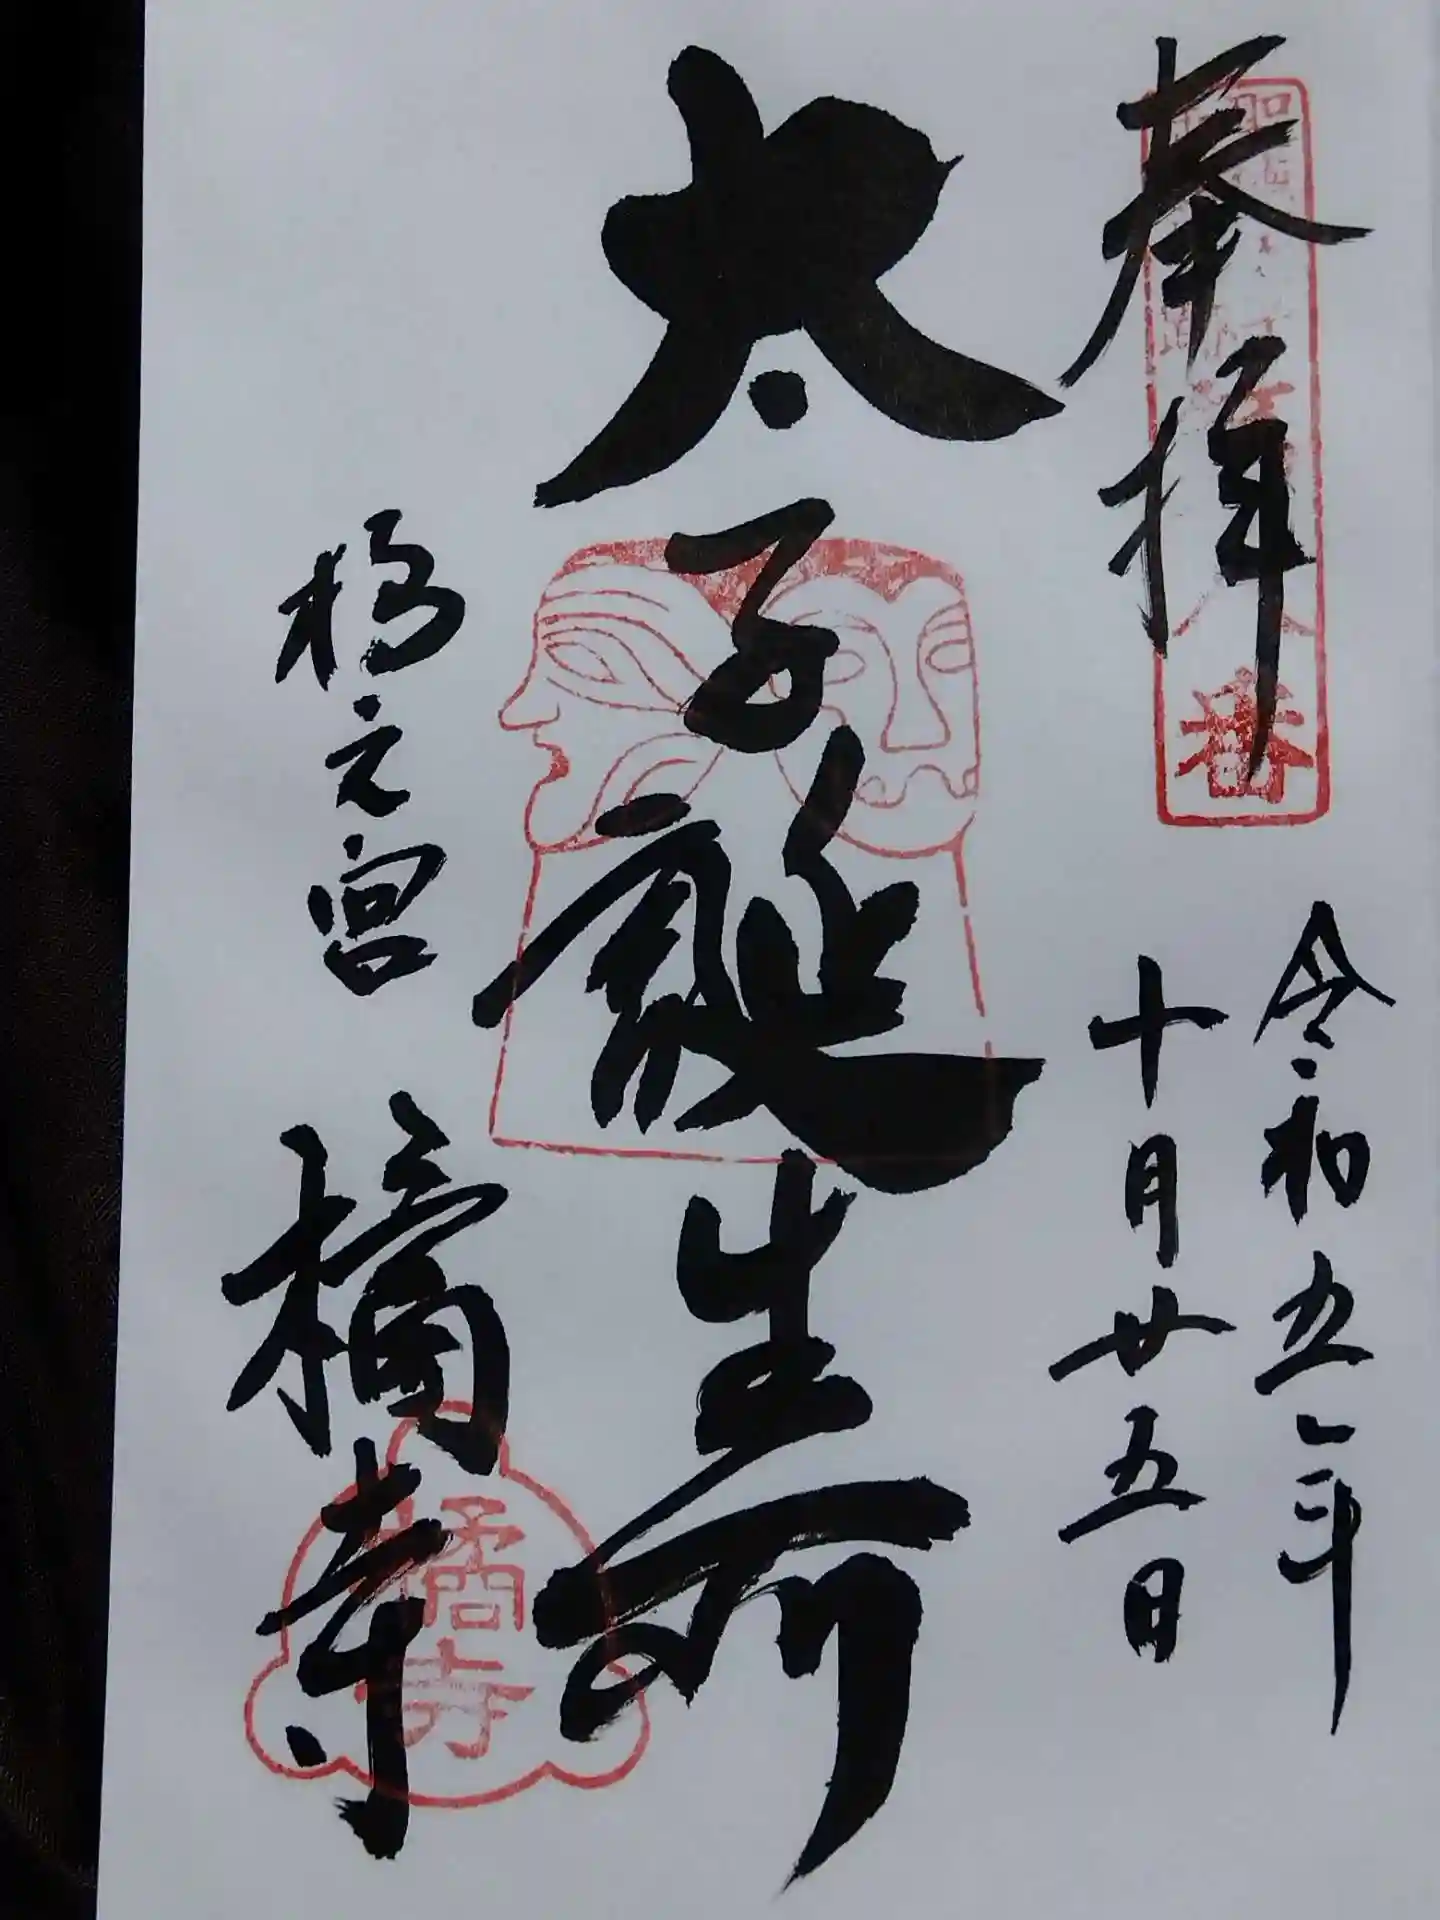 奉拝
令和五年
十月廿五日
太子誕生所
橘之宮
橘寺
番
橘寺